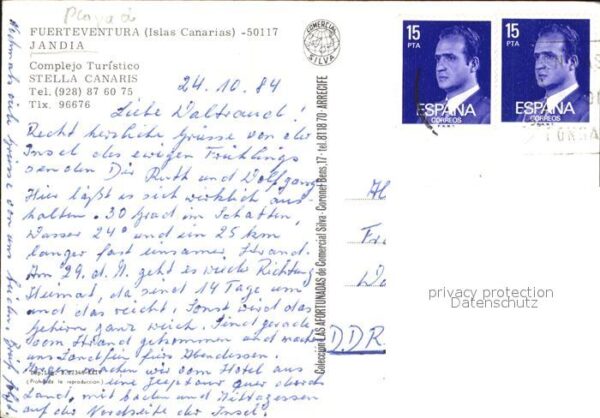 Playa de
FUERTEVENTURA (Islas Canarias) -50117
JANDIA
Complejo Turístico
STELLA CANARIS
Tel. (928) 87 60 75
Tlx. 96676
COMERCIAL SILVA
15
PTA
ESPAÑA
CORREOS
15
PTA
ESPAÑA
CORREOS
24.10.84
Liebe Waltraud!
Recht herzliche Grüsse von der
Insel des ewigen Frühlings
senden Dir Ruth und Wolfgang
Hier läßt es sich wirklich aus
halten. 30 Grad im Schatten,
Wasser 24° und ein 25 km
langer fast einsamer Strand.
Am 29. d. M. geht es wieder Richtung
Heimat, da sind 14 Tage um
und das reicht. Sonst wird das
Gehirn ganz weich. Sind gerade
vom Strand gekommen und machen
uns landfein fürs Abendessen.
machen wir vom Hotel aus
eine Jeeptour quer durchs
Land, mit baden und Mittagessen
auf der Nordseite der Insel.
(Prohibida la reproducción)
Nochmals viele Grüsse von uns
Colección LAS AFORTUNADAS de Comercial Silva - Coronel Bens, 17 - tel. 81 18 70 - ARRECIFE
Fr
DDR
privacy protection
Datenschutz